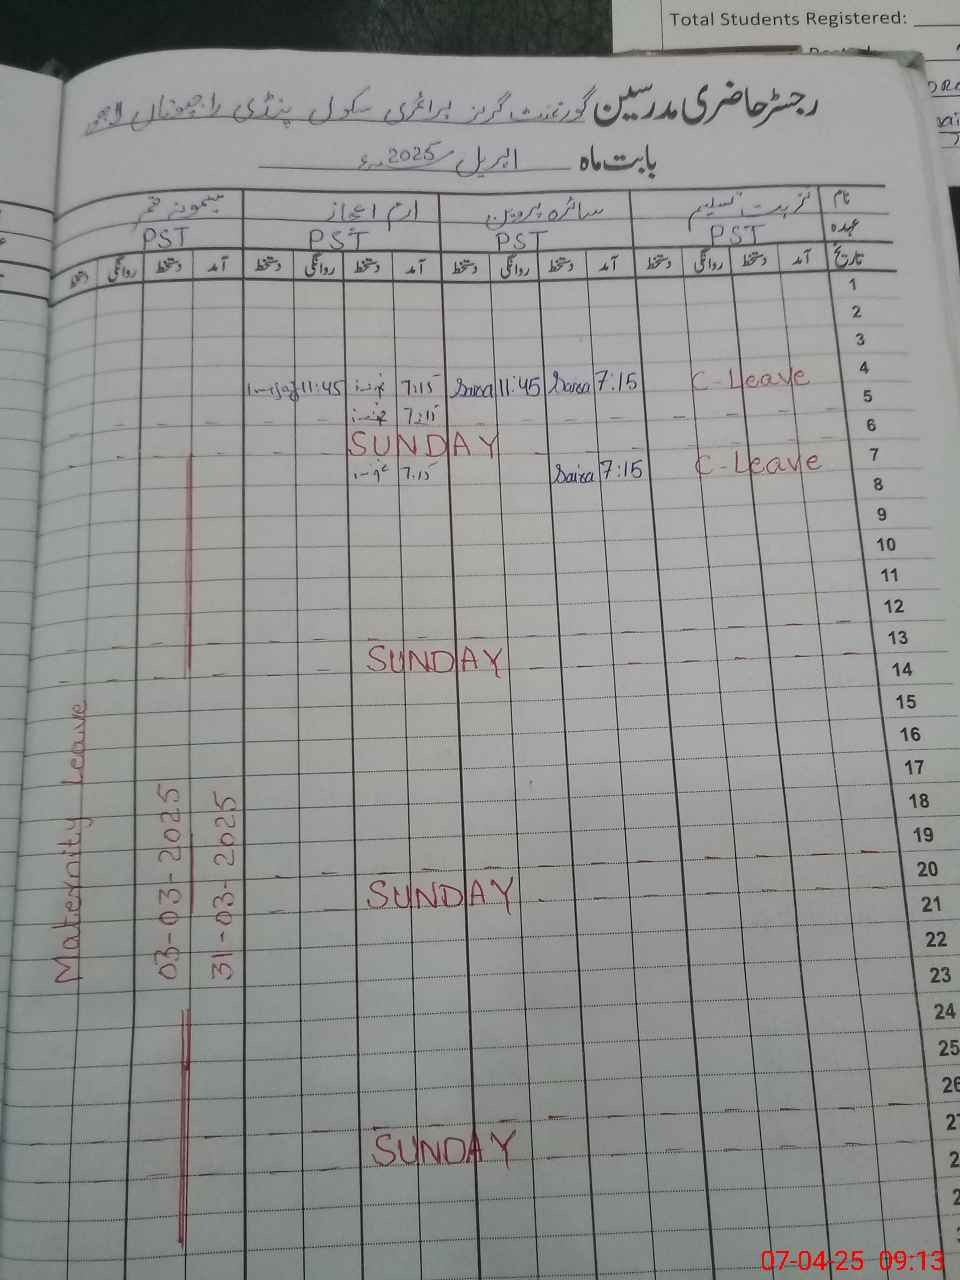 Total Students Registered:
رجسٹر حاضری مدرسین گورنمنٹ گرلز پرائمری سکول پنڈی راجپوتاں لاہور
بابت ماہ اپریل 2025ء
نام تربیت تسلیم سائرہ پروین ارم اعجاز میمونہ قمر
عہدہ PST PST PST PST
تاریخ آمد دستخط روانگی دستخط آمد دستخط روانگی دستخط آمد دستخط روانگی دستخط آمد دستخط روانگی دستخط
1
2
3
4 C-Leave 7:15 Saira 11:45 Saira 7:15 11:45
5 7:15
6 SUNDAY
7 C-Leave 7:15 Saira 7:15
8
9
10
11
12
13 SUNDAY
14
15
16
17
18
19
20 SUNDAY
21
22
23
24
25
26
SUNDAY
Maternity Leave
03-03-2025
31-03-2025
07-04-25 09:13